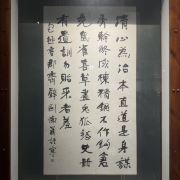 清心為治本直道是身謀
秀幹終成棟精鋼不作鈎倉
充鼠雀喜草盡兔狐愁史册
有遺訓毋貽來者羞
包拯書郡齋壁